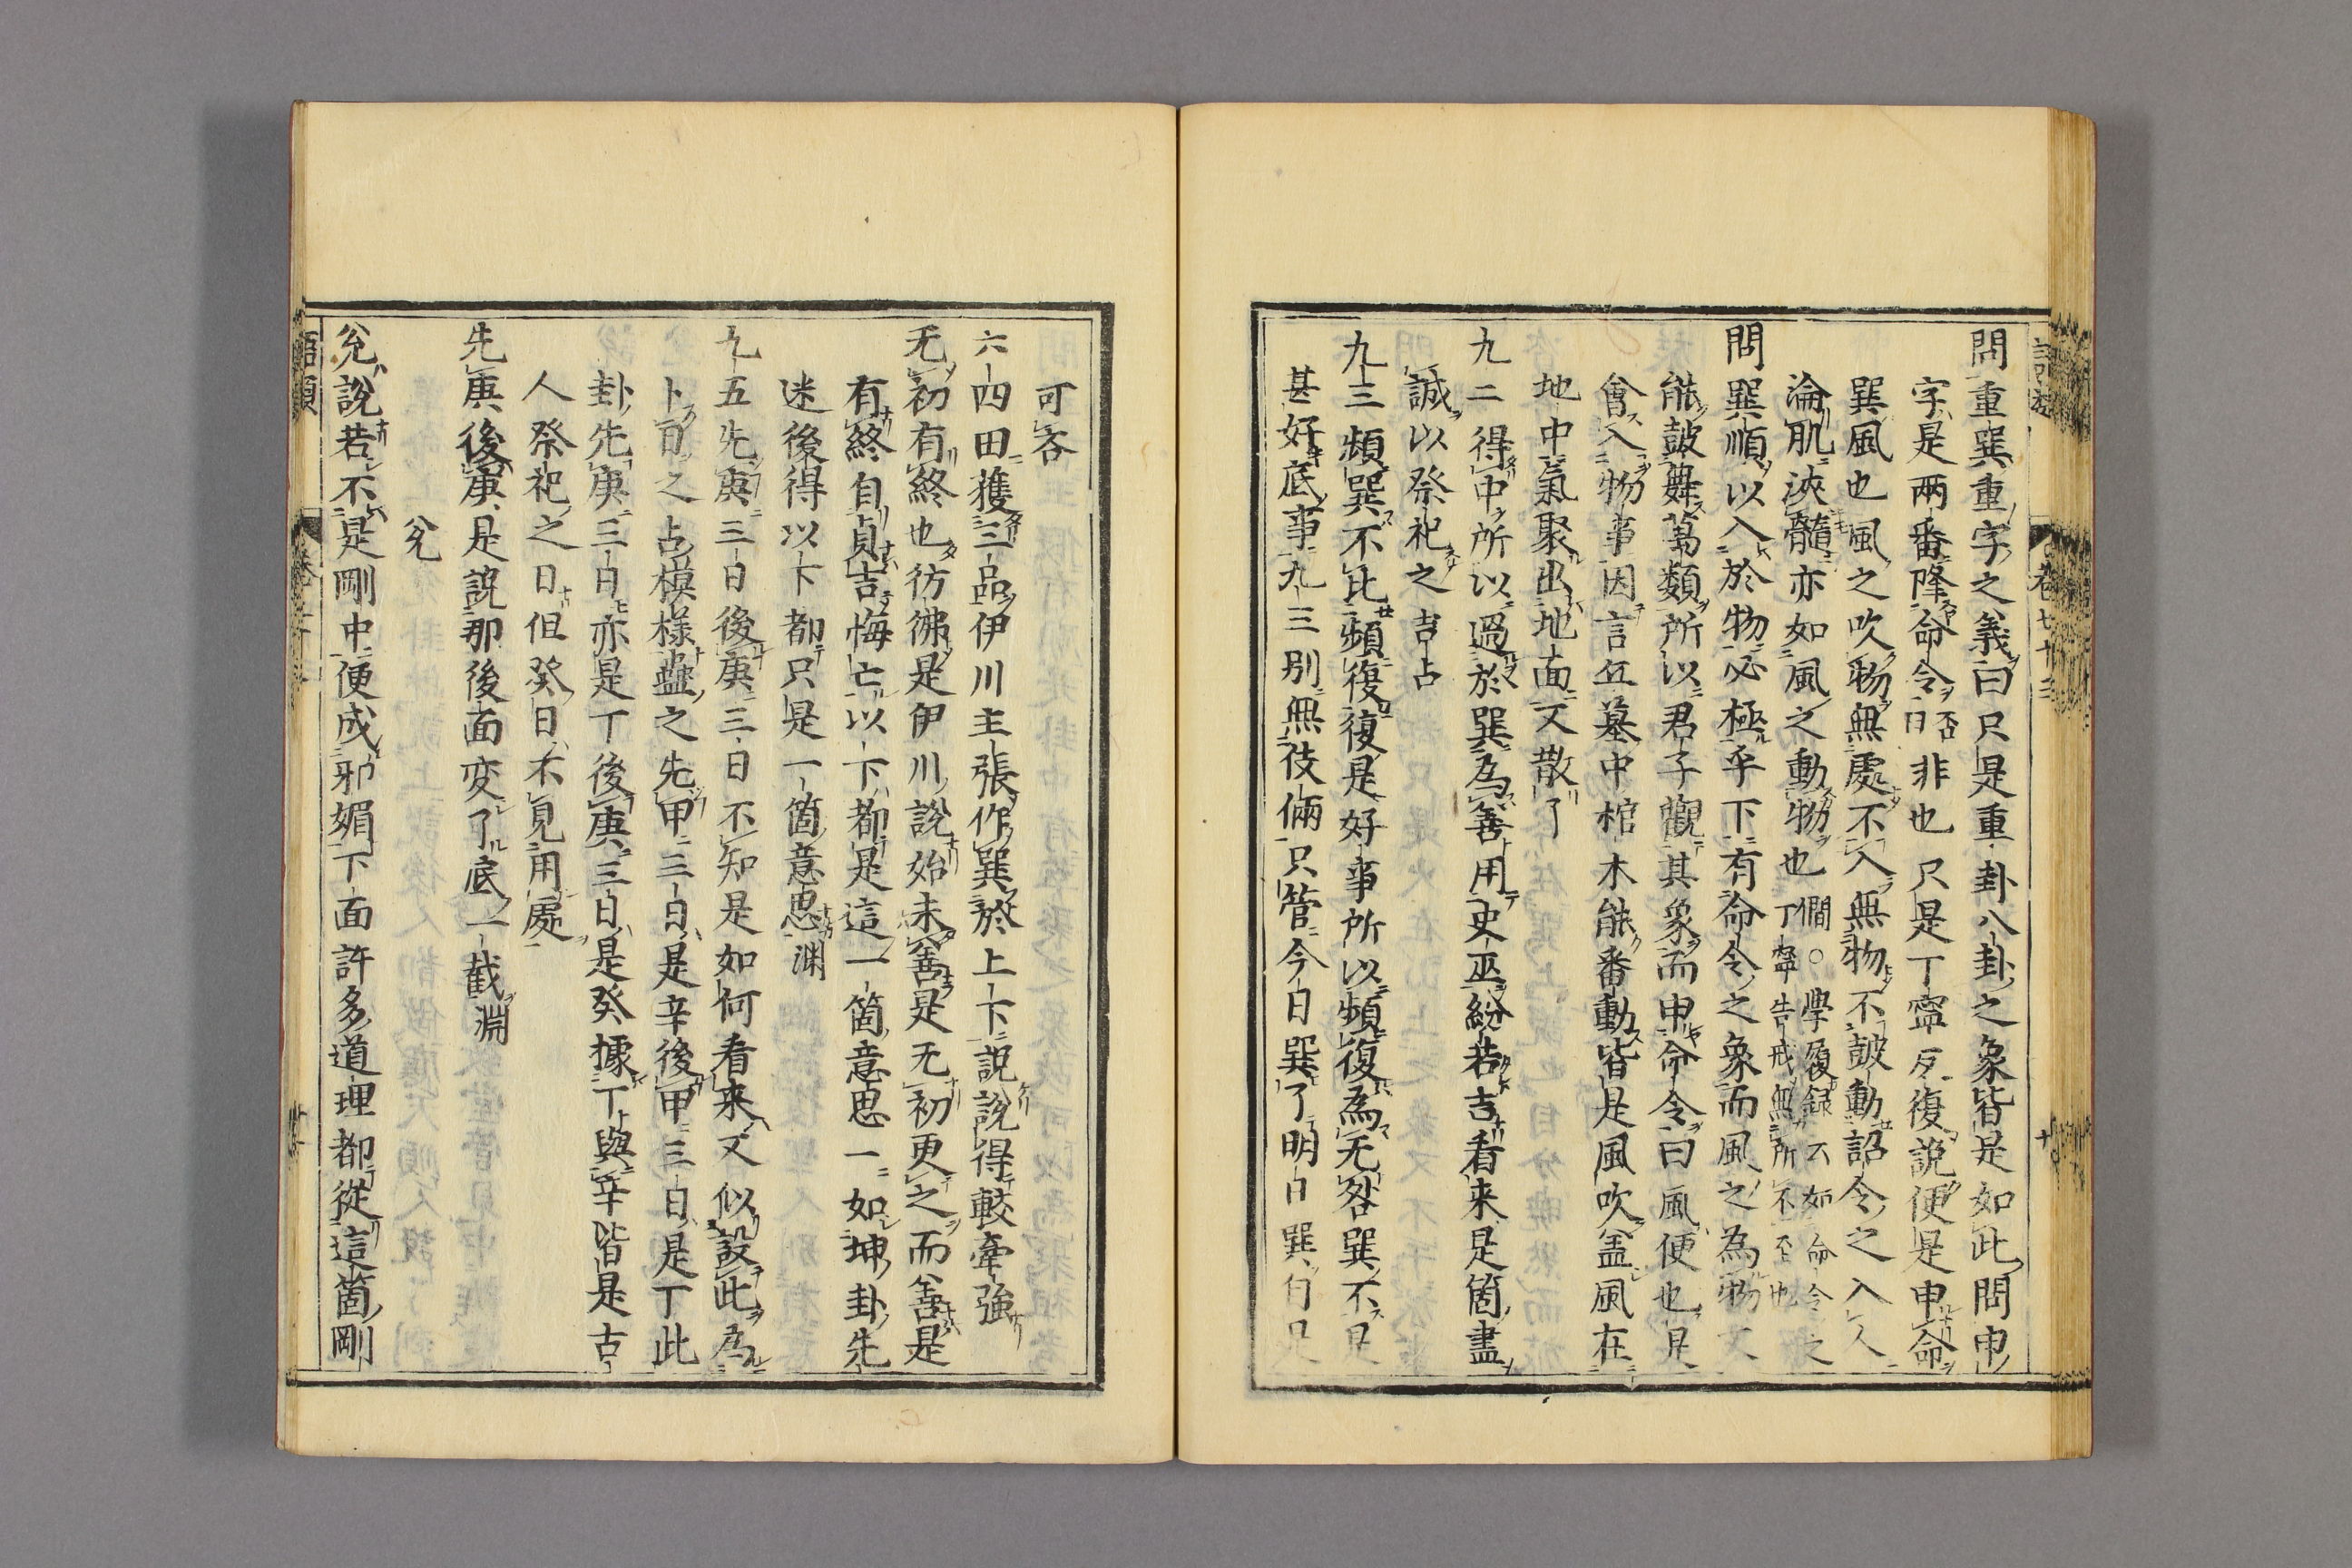 問重巽重字之義曰只是重卦八卦之象皆是如此問申
字是兩番降命令否曰非也只是丁寧反復說便是申命
巽風也風之吹物無處不入無物不鼓動詔令之入人
淪肌浹髓亦如風之動物也僩○學履録云如命令之丁寧告戒無所不至也
問巽順以入於物必極乎下有命令之象而風之為物又
能鼓舞萬類所以君子觀其象而申命令曰風便也是
會入物事因言丘墓中棺木能番動皆是風吹盖風在
地中氣聚出地面又散了
九二得中所以過於巽為善用史巫紛若吉看来是箇盡
誠以祭祀之吉占
九三頻巽不比頻復復是好事所以頻復為无咎巽不是
甚好底事九三別無伎倆只管今日巽了明日巽自是
可吝
六四田獲三品伊川主張作巽於上下說說得較牽強
无初有終也彷彿是伊川說始未善是无初更之而善是
有終自貞吉悔亡以下都是這一箇意思一如坤卦先
迷後得以下都只是一箇意思淵
九五先庚三日後庚三日不知是如何看来又似設此為
卜日之占模様蠱之先甲三日是辛後甲三日是丁此
卦先庚三日亦是丁後庚三日是癸據丁與辛皆是古
人祭祀之日但癸日不見用處
先庚後庚是說那後面変了底一截淵
兊
兊說若不是剛中便成邪媚下面許多道理都從這箇剛
語類